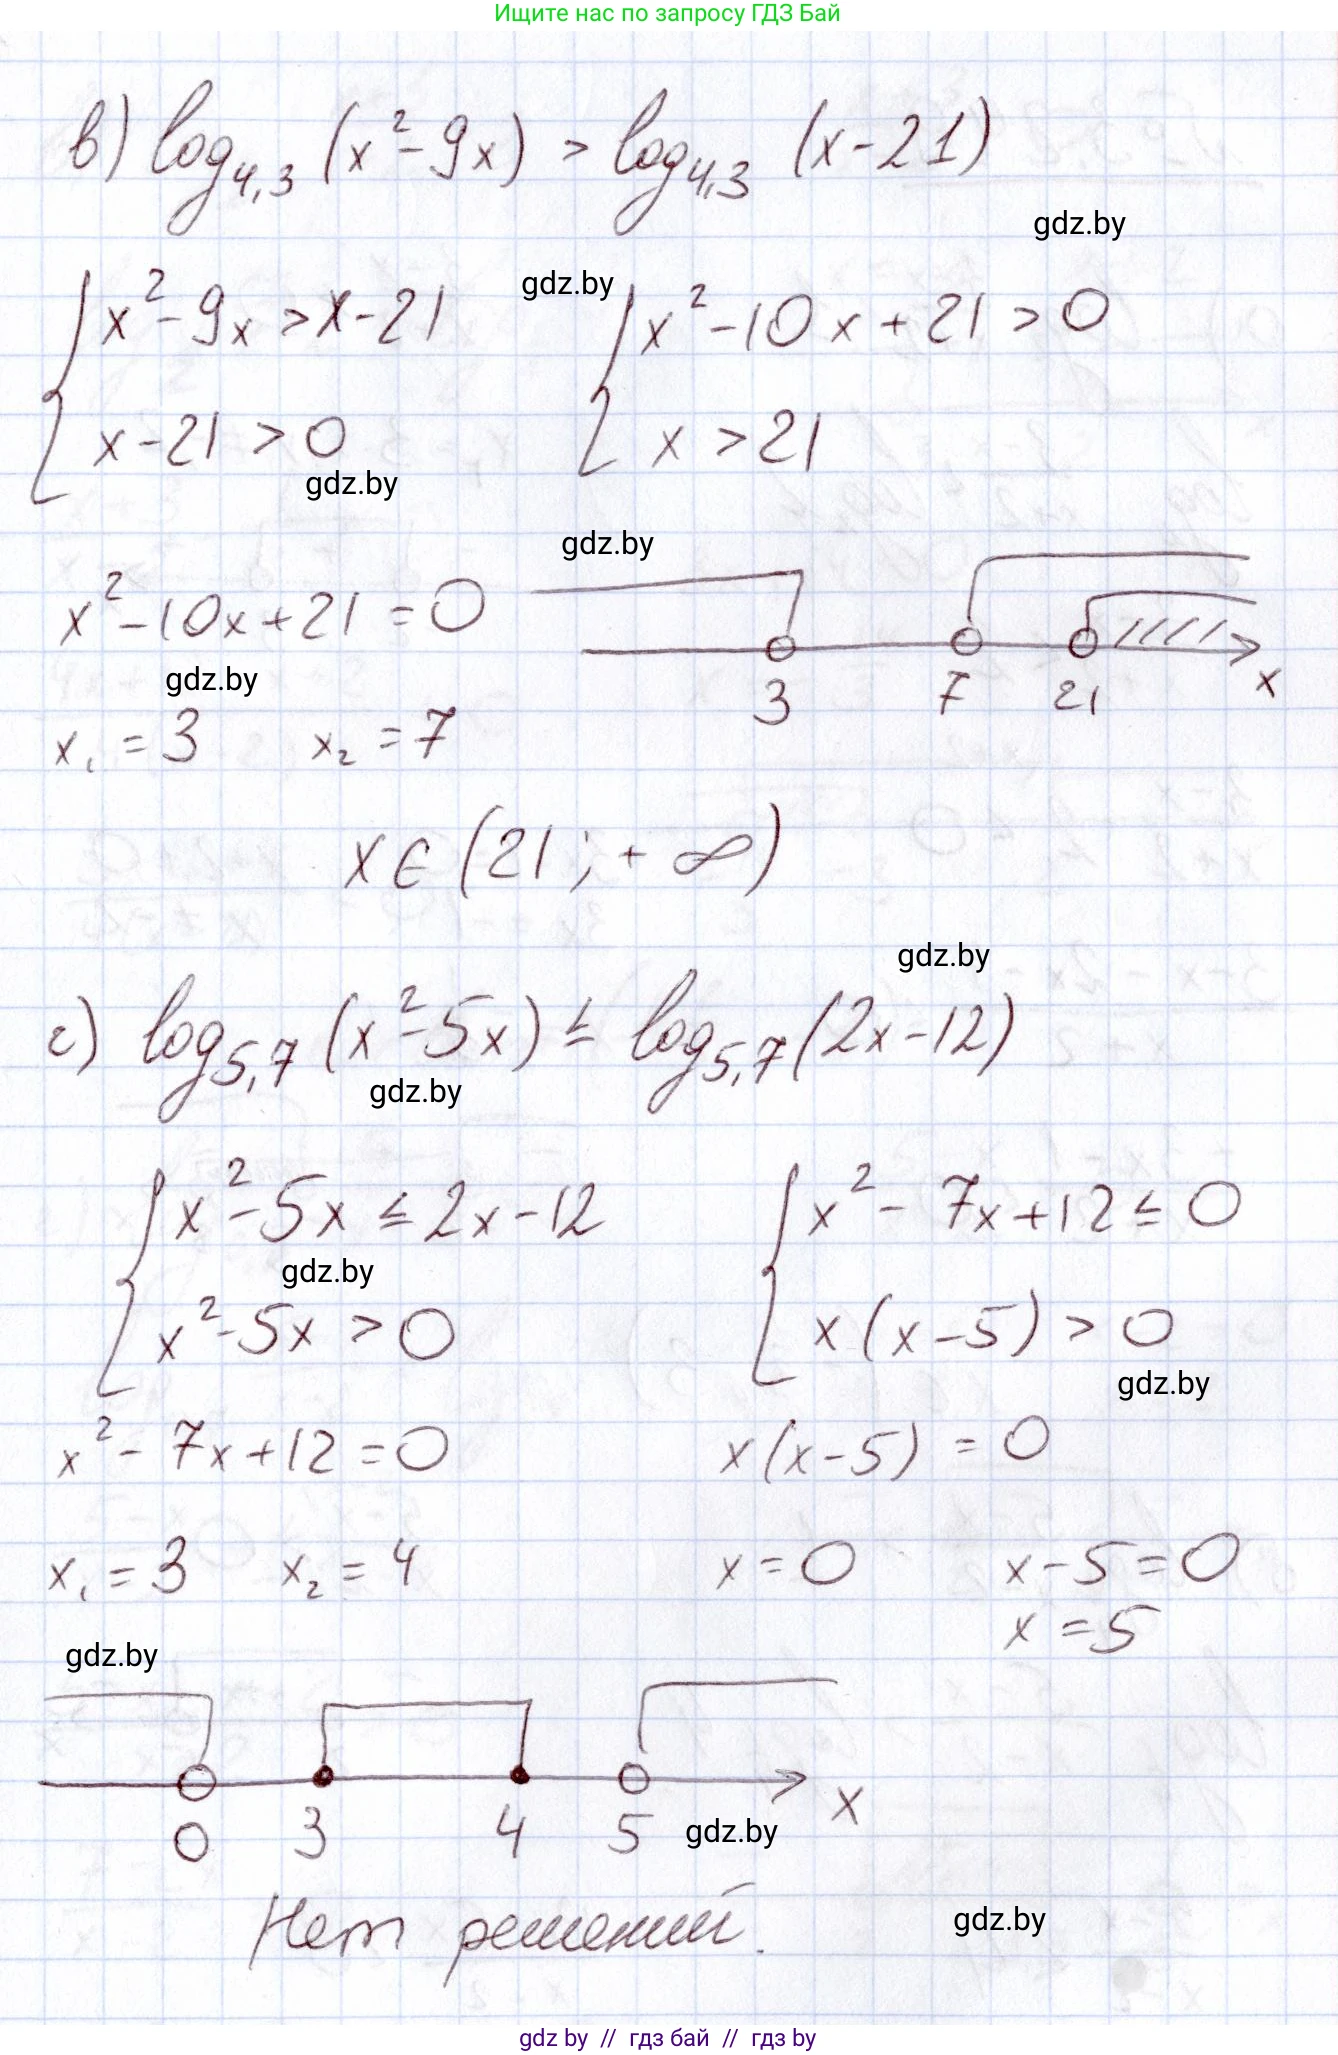 Ищите нас по запросу ГДЗ Бай
в) log₄,₃ (x² - 9x) > log₄,₃ (x - 21)
gdz.by
gdz.by
{ x² - 9x > x - 21 { x² - 10x + 21 > 0
x - 21 > 0 x > 21
gdz.by
gdz.by
x² - 10x + 21 = 0
gdz.by
3 7 21 x
x₁ = 3 x₂ = 7
x ∈ (21; + ∞)
gdz.by
г) log₅,₇ (x² - 5x) ≤ log₅,₇ (2x - 12)
gdz.by
{ x² - 5x ≤ 2x - 12 { x² - 7x + 12 ≤ 0
gdz.by
x² - 5x > 0 x (x - 5) > 0
gdz.by
x² - 7x + 12 = 0 x (x - 5) = 0
x₁ = 3 x₂ = 4 x = 0 x - 5 = 0
x = 5
gdz.by
0 3 4 5 x
gdz.by
Нет решений.
gdz.by
gdz by // гдз бай // гдз by